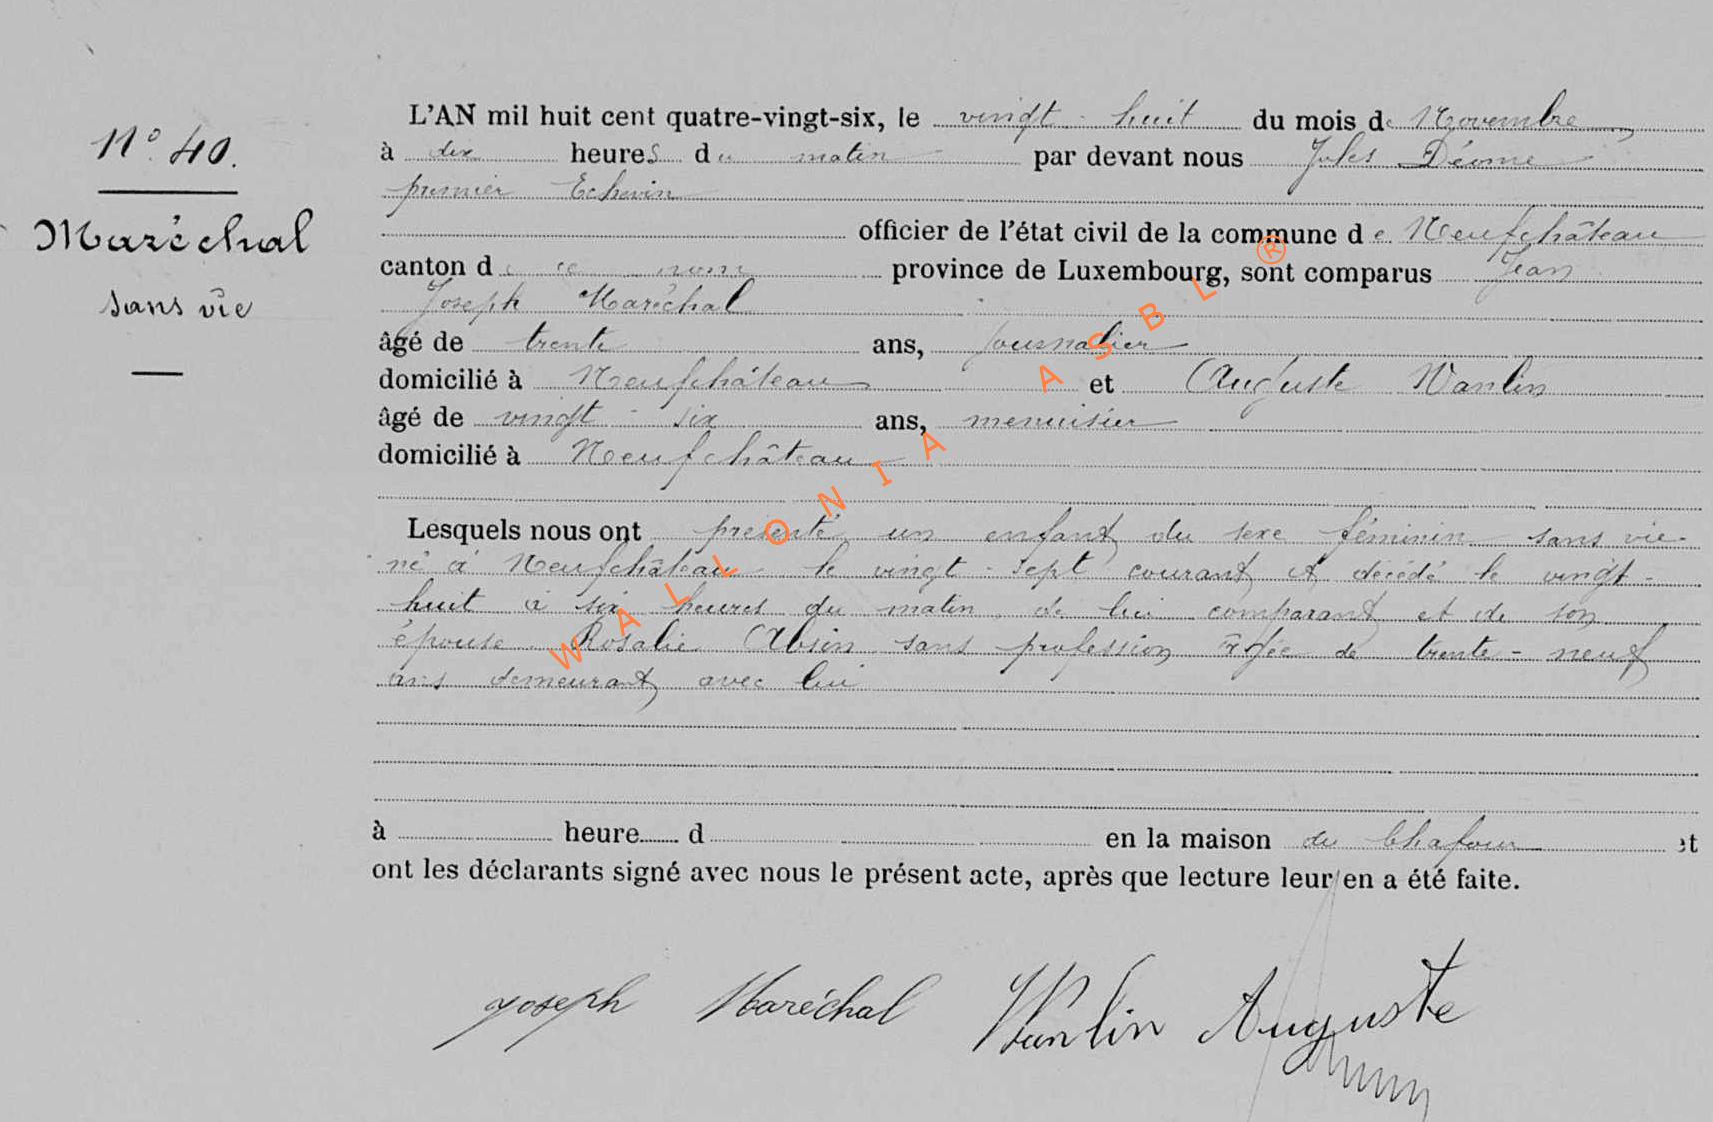 N° 40.
Maréchal
sans vie
L'AN mil huit cent quatre-vingt-six, le vingt-huit du mois de Novembre
à dix heures du matin par devant nous Jules Déome
premier Echevin
officier de l'état civil de la commune de Neufchâteau
canton de ce nom province de Luxembourg, sont comparus Jean
Joseph Maréchal
âgé de trente ans, journalier
domicilié à Neufchâteau et Auguste Wanlin
âgé de vingt-six ans, menuisier
domicilié à Neufchâteau
Lesquels nous ont présenté un enfant du sexe féminin sans vie
né à Neufchâteau le vingt-sept courant et décédé le vingt-
huit à six heures du matin, de lui comparant et de son
épouse Rosalie Absin sans profession âgée de trente-neuf
ans demeurant avec lui
à heure d en la maison du Chafour et
ont les déclarants signé avec nous le présent acte, après que lecture leur en a été faite.
Joseph Maréchal Wanlin Auguste
WALLONIA ASBL ®